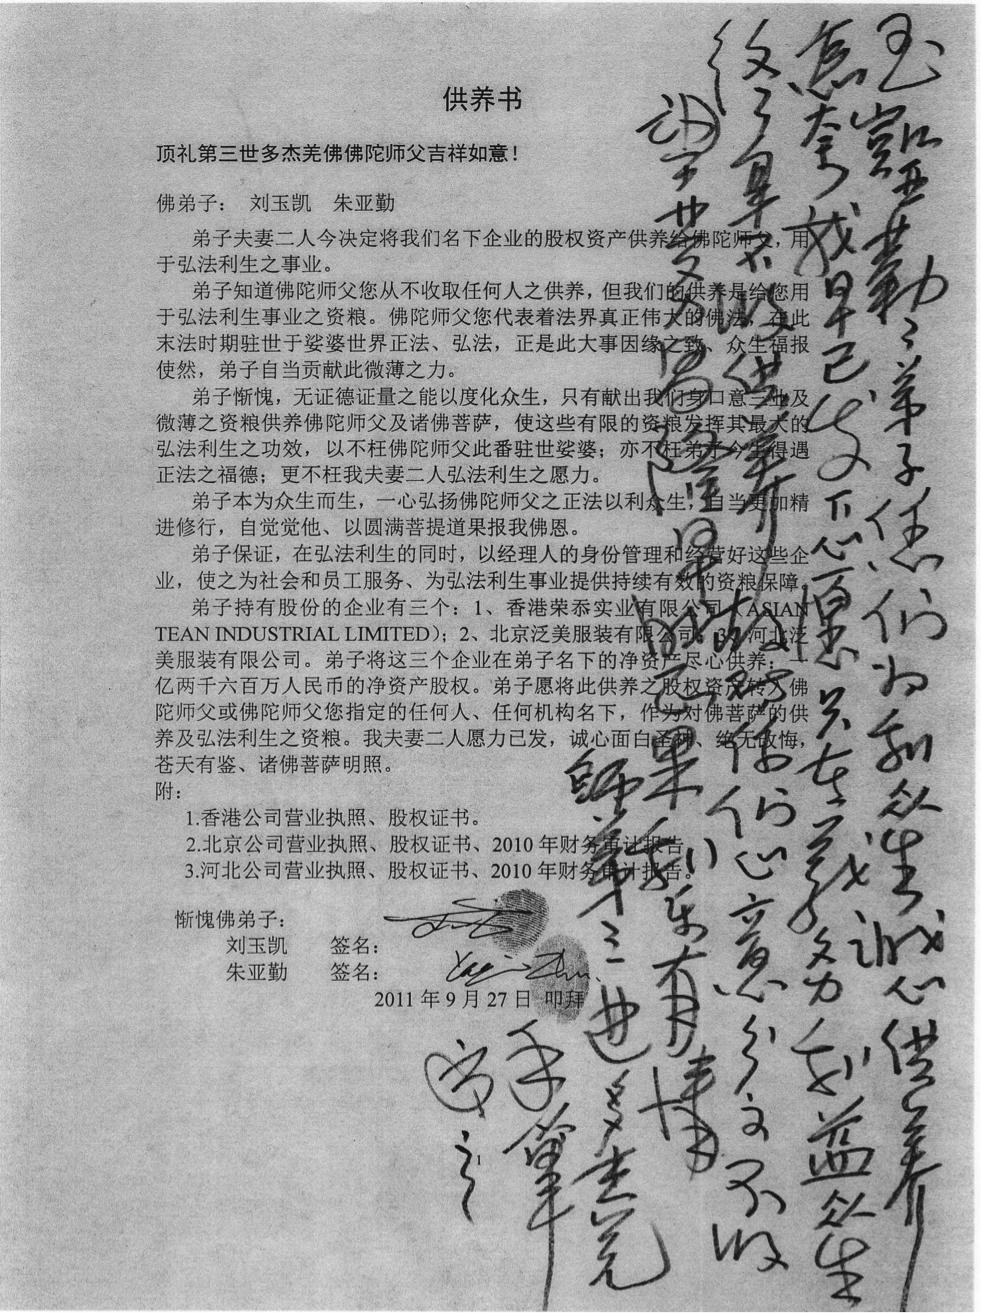 供养书
顶礼第三世多杰羌佛佛陀师父吉祥如意！
佛弟子： 刘玉凯 朱亚勤
弟子夫妻二人今决定将我们名下企业的股权资产供养给佛陀师父，用
于弘法利生之事业。
弟子知道佛陀师父您从不收取任何人之供养，但我们的供养是给您用
于弘法利生事业之资粮。佛陀师父您代表着法界真正伟大的佛法，在此
末法时期驻世于娑婆世界正法、弘法，正是此大事因缘之致、众生福报
使然，弟子自当贡献此微薄之力。
弟子惭愧，无证德证量之能以度化众生，只有献出我们身口意三业及
微薄之资粮供养佛陀师父及诸佛菩萨，使这些有限的资粮发挥其最大的
弘法利生之功效，以不枉佛陀师父此番驻世娑婆；亦不枉弟子今生得遇
正法之福德；更不枉我夫妻二人弘法利生之愿力。
弟子本为众生而生，一心弘扬佛陀师父之正法以利众生，自当更加精
进修行，自觉觉他、以圆满菩提道果报我佛恩。
弟子保证，在弘法利生的同时，以经理人的身份管理和经营好这些企
业，使之为社会和员工服务、为弘法利生事业提供持续有效的资粮保障。
弟子持有股份的企业有三个：1、香港荣泰实业有限公司（ASIAN
TEAN INDUSTRIAL LIMITED）；2、北京泛美服装有限公司；3、河北泛
美服装有限公司。弟子将这三个企业在弟子名下的净资产尽心供养：一
亿两千六百万人民币的净资产股权。弟子愿将此供养之股权资产转入佛
陀师父或佛陀师父您指定的任何人、任何机构名下，作为对佛菩萨的供
养及弘法利生之资粮。我夫妻二人愿力已发，诚心面白圣神、绝无改悔，
苍天有鉴、诸佛菩萨明照。
附：
1.香港公司营业执照、股权证书。
2.北京公司营业执照、股权证书、2010 年财务审计报告。
3.河北公司营业执照、股权证书、2010 年财务审计报告。
惭愧佛弟子：
刘玉凯 签名：
朱亚勤 签名：
2011 年 9 月 27 日 叩拜
1
玉凯亚勤二弟子您们为利众生诚心供养
怎奈我早已发下心愿只在义务利益众生
不收供养 你们心意分文不收
果利乐有情
师第三世多杰羌
手笔